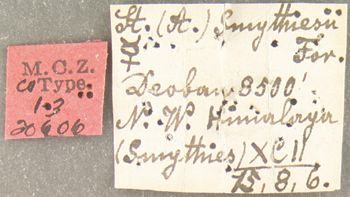 M.C.Z.
CoType
1-3
20606
St. (A.) Smythiesii
☿ For.
Deoban 8500'
N. W. Himalaya
(Smythies) XCII
15, 8, 6.